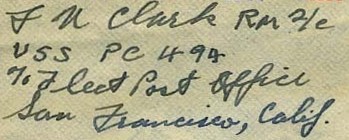 F N Clark RM 2/c
USS PC 494
% Fleet Post Office
San Francisco, Calif.